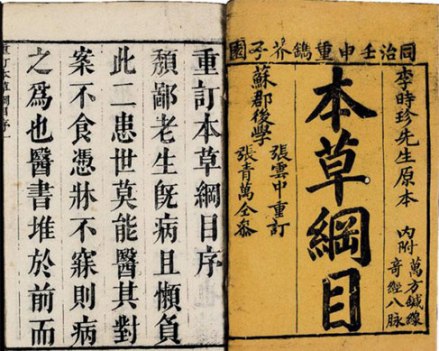 同治壬申重鐫芥子園
李時珍先生原本
內附萬方鍼線
奇經八脉
本草綱目
蘇郡後學
張雲中重訂
張青萬仝叅
重訂本草綱目序
頽鄙老生旣病且懶負
此二患世莫能醫其對
案不食憑牀不寐則病
之爲也醫書堆於前而
重訂本草綱目序一